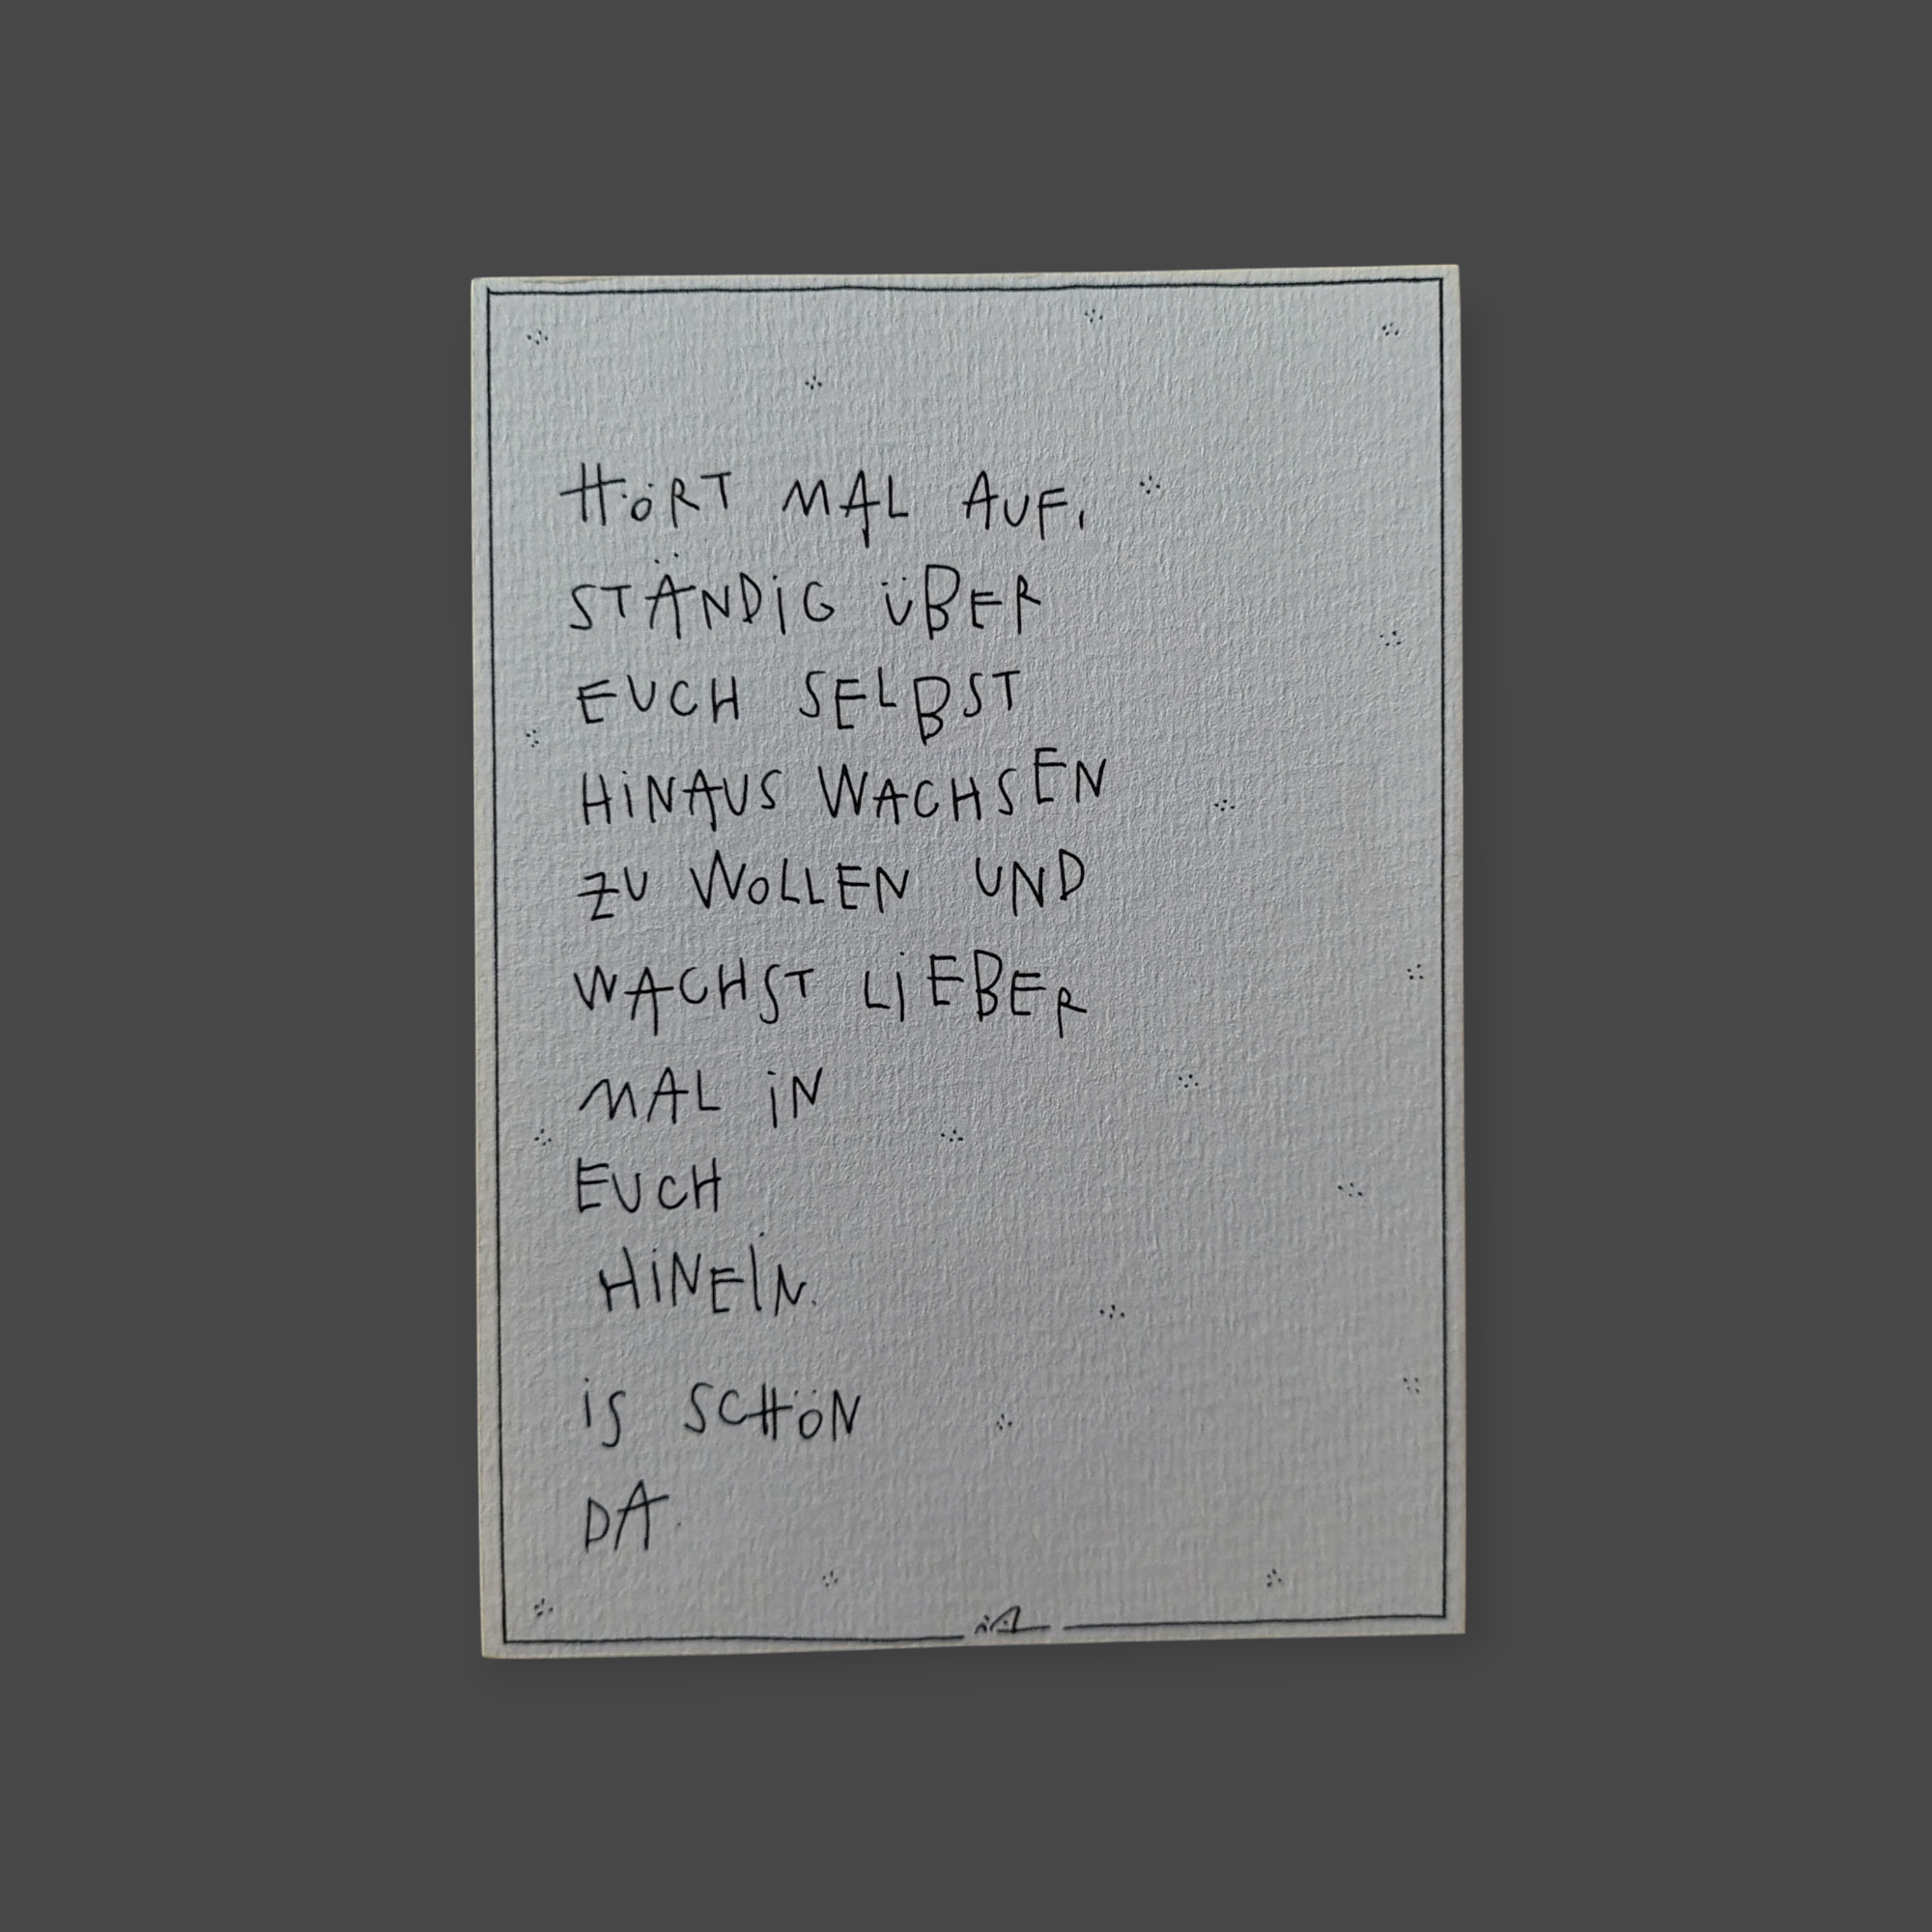 HÖRT MAL AUF,
STÄNDiG ÜBER
EUCH SELBST
HiNAUS WACHSEN
ZU WOLLEN UND
WACHST LiEBER
MAL iN
EUCH
HiNEiN.
iS SCHÖN
DA.